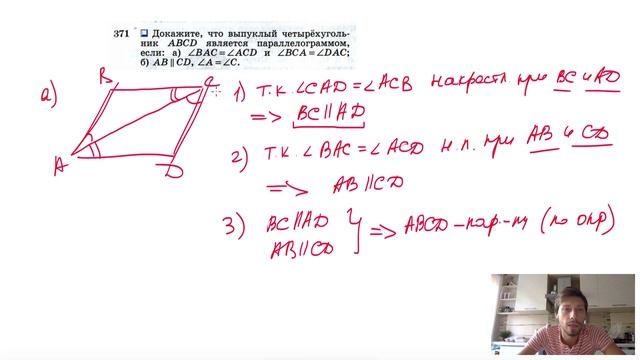 371 Докажите, что выпуклый четырёхуголь-
ник ABCD является параллелограммом,
если: а) ∠BAC=∠ACD и ∠BCA=∠DAC;
б) AB∥CD, ∠A=∠C.
а)
B C
A D
1) т.к. ∠CAD=∠ACB накрестл при BC и AD
=> BC∥AD
2) т.к. ∠BAC=∠ACD н.л. при AB и CD
=> AB∥CD
3) BC∥AD
AB∥CD
=> ABCD – пар-м (по опр)